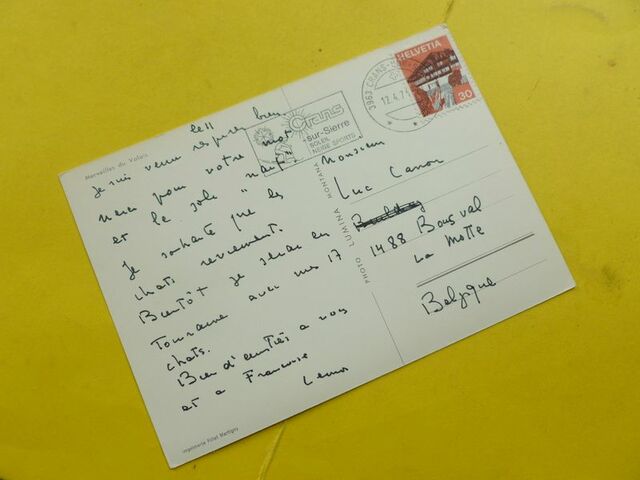 Merveilles du Valais
le 11
Je suis venue respirer bien
Merci pour votre mot
et le joli "
Je souhaite que les
chats reviennent.
Bientôt je serai en
Touraine avec mes 17
chats.
Bien d'amitiés a vous
et a Francoise
Imprimerie Pillet Martigny
PHOTO LUMINA MONTANA
Crans
-sur-Sierre
SOLEIL
NEIGE SPORTS
3963 CRANS-
12.4.7
HELVETIA
30
Monsieur
Luc Canon
1488 Bousval
La Motte
Belgique